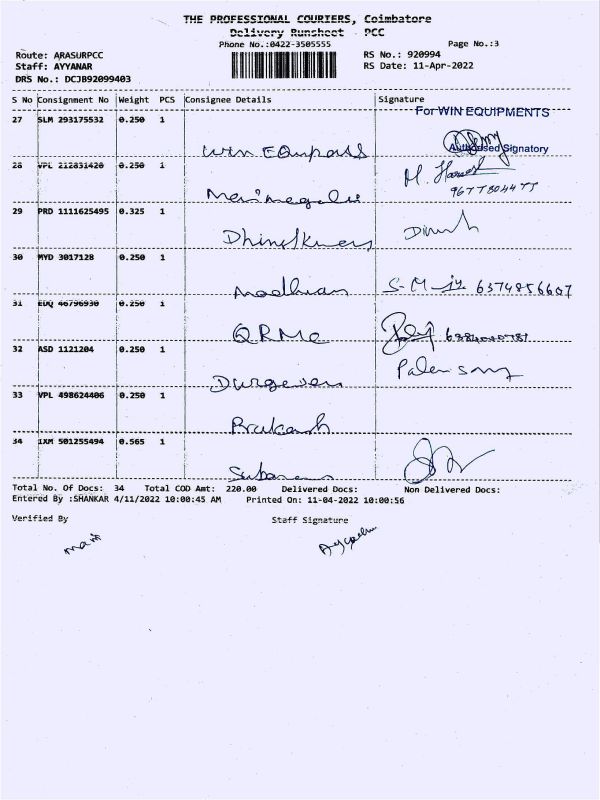 THE PROFESSIONAL COURIERS, Coimbatore
Delivery Runsheet - PCC
Phone No.:0422-3505555
Page No.:3
Route: ARASURPCC
RS No.: 920994
Staff: AYYANAR
RS Date: 11-Apr-2022
DRS No.: DCJB92099403
S No Consignment No Weight PCS Consignee Details Signature
For WIN EQUIPMENTS
27 SLM 293175532 0.250 1
Authorised Signatory
28 VPL 212831420 0.250 1
M.
9677804477
29 PRD 1111625495 0.325 1
Dinesh
30 MYD 3017128 0.250 1
Madhian S-M 6374856607
31 EDQ 46796930 0.250 1
QRMC
32 ASD 1121204 0.250 1
33 VPL 498624406 0.250 1
Prakash
34 IXM 501255494 0.565 1
Total No. Of Docs: 34 Total COD Amt: 220.00 Delivered Docs: Non Delivered Docs:
Entered By :SHANKAR 4/11/2022 10:00:45 AM Printed On: 11-04-2022 10:00:56
Verified By Staff Signature